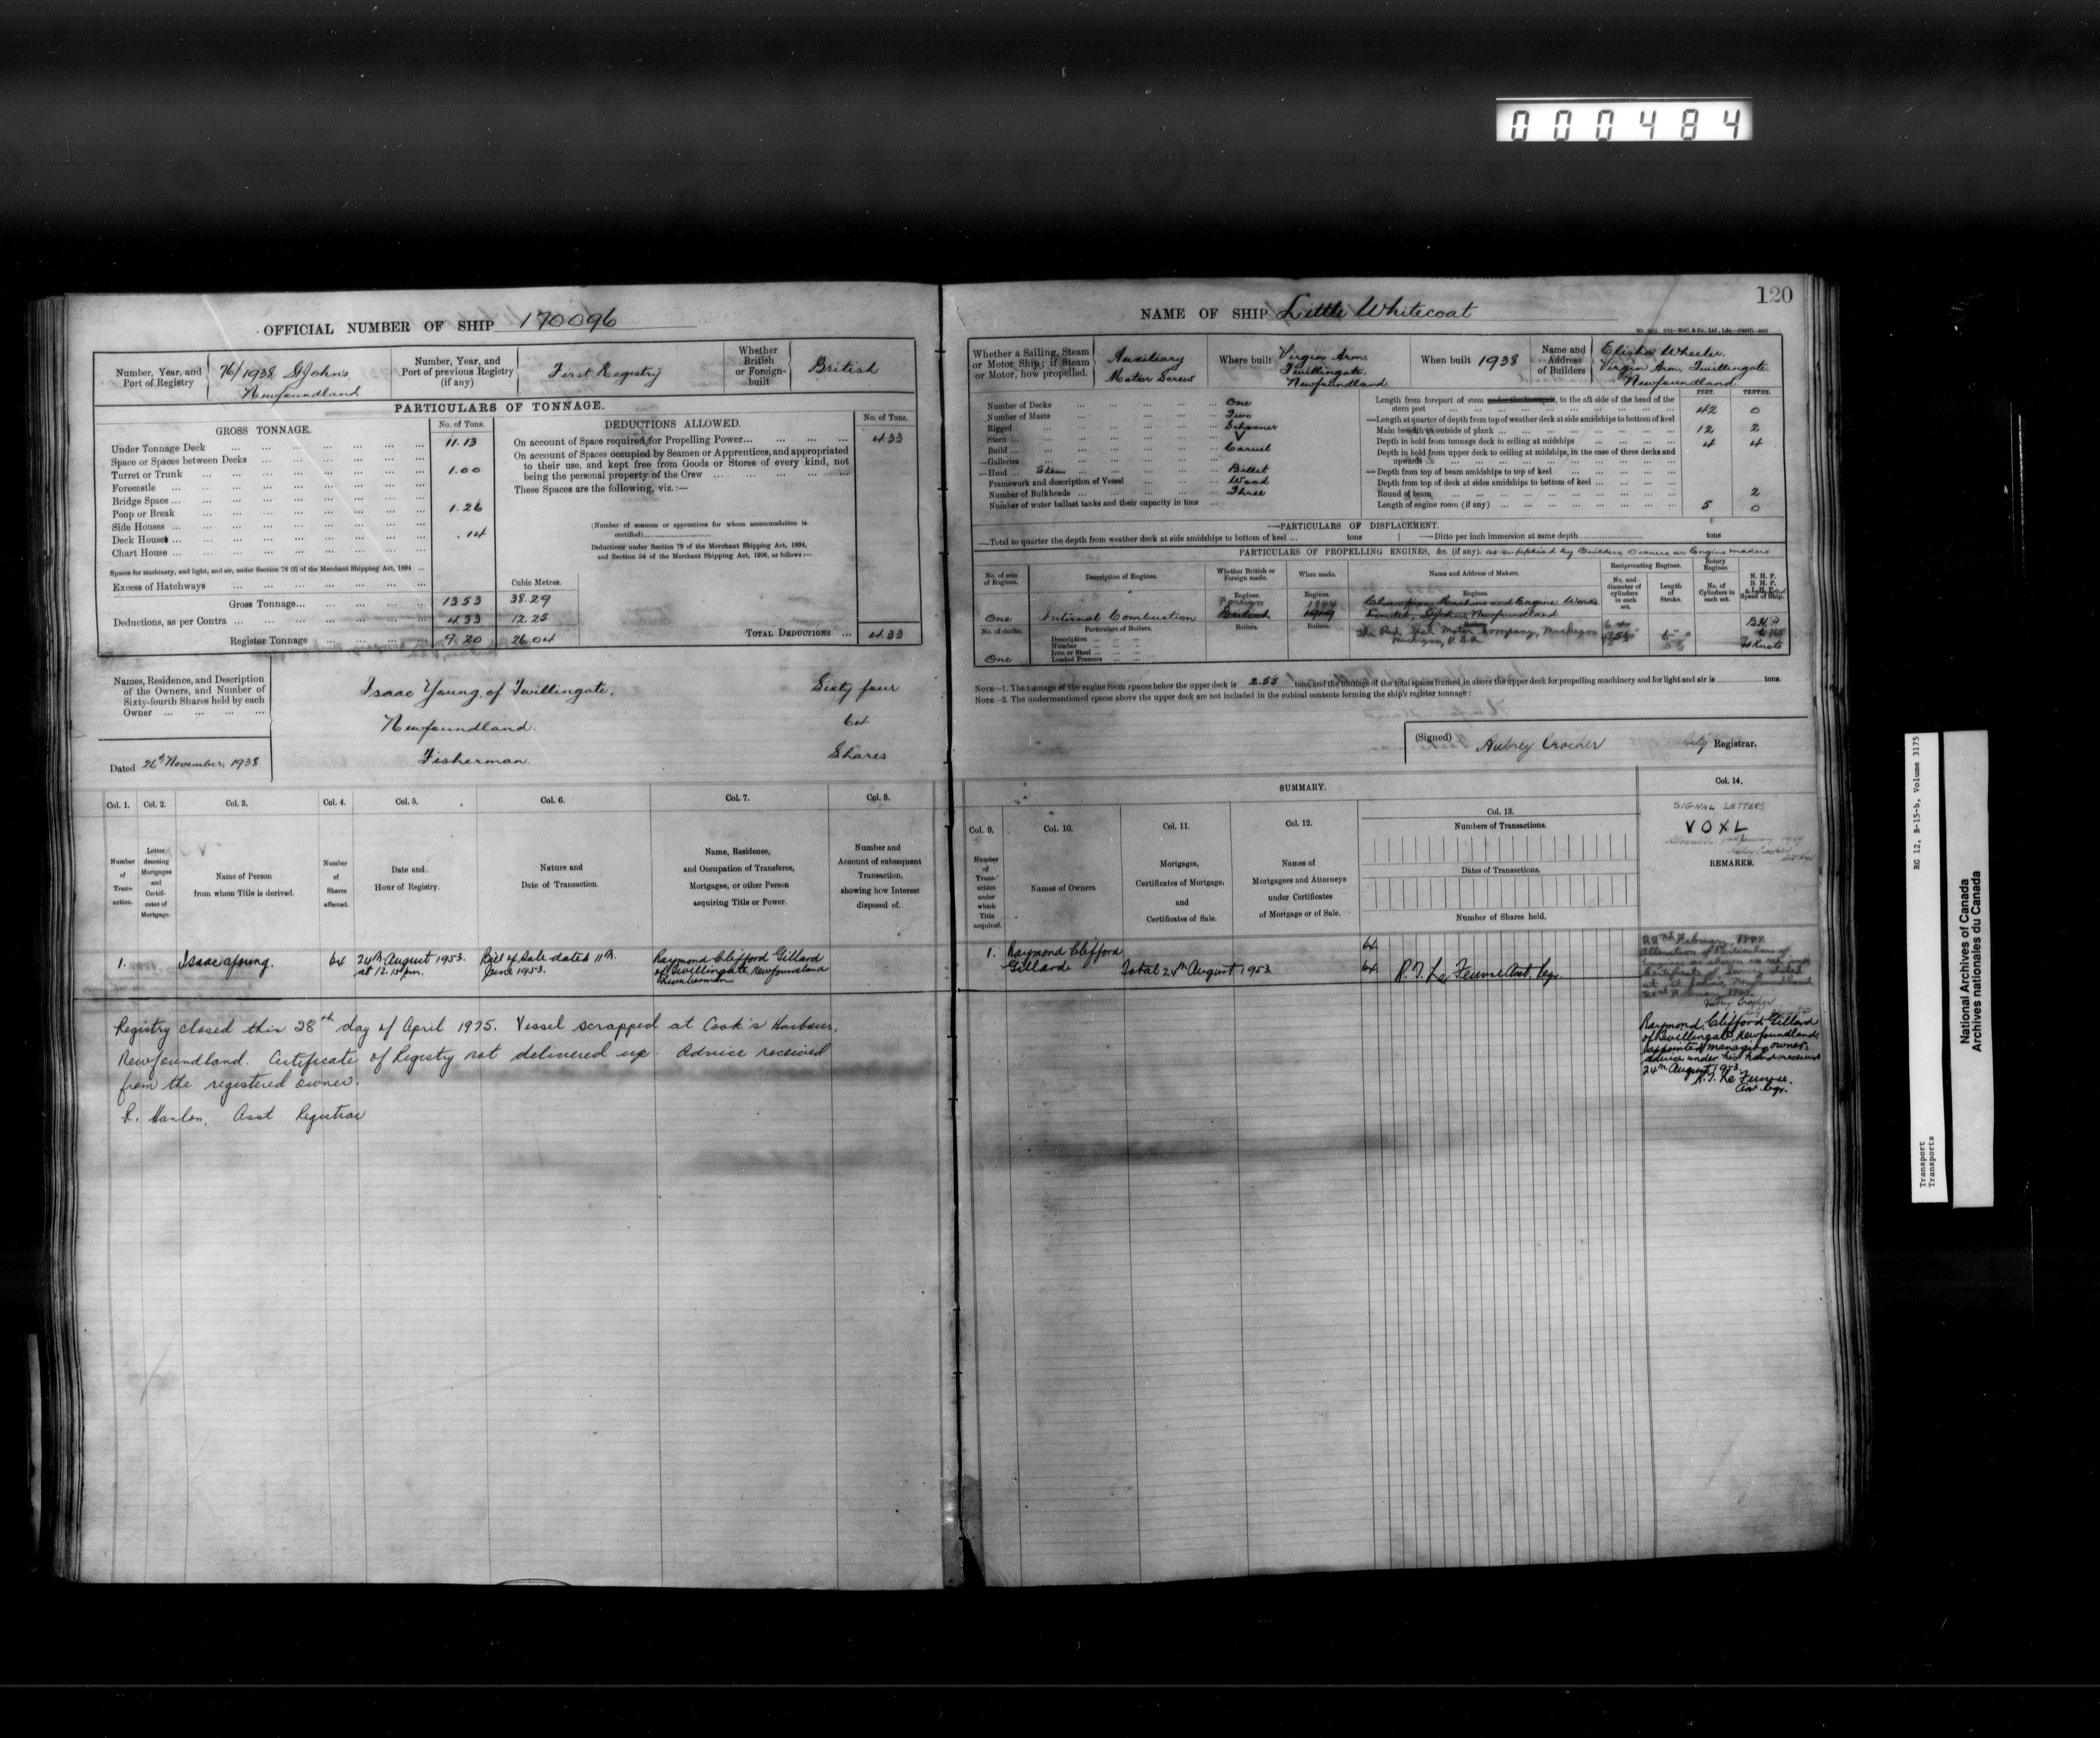 000484
120
OFFICIAL NUMBER OF SHIP 170096
Number, Year, and Port of Registry
76/1938 St Johns
Newfoundland
Number, Year, and Port of previous Registry (if any)
First Registry
Whether British or Foreign-built
British
PARTICULARS OF TONNAGE.
GROSS TONNAGE.
No. of Tons.
Under Tonnage Deck ... 11.13
Space or Spaces between Decks ...
Turret or Trunk ... 1.00
Forecastle ...
Bridge Space ...
Poop or Break ... 1.26
Side Houses ...
Deck House ... .14
Chart House ...
Spaces for machinery, and light, and air, under Section 78 (2) of the Merchant Shipping Act, 1894 ...
Excess of Hatchways ...
Cubic Metres.
Gross Tonnage ... 13.53 38.29
Deductions, as per Contra ... 4.33 12.25
Register Tonnage ... 9.20 26.04
DEDUCTIONS ALLOWED.
No. of Tons.
On account of Space required for Propelling Power ... 4.33
On account of Spaces occupied by Seamen or Apprentices, and appropriated
to their use, and kept free from Goods or Stores of every kind, not
being the personal property of the Crew ...
These Spaces are the following, viz.:—
(Number of seamen or apprentices for whom accommodation is
certified)
Deductions under Section 79 of the Merchant Shipping Act, 1894,
and Section 54 of the Merchant Shipping Act, 1906, as follows:—
TOTAL DEDUCTIONS ... 4.33
Names, Residence, and Description
of the Owners, and Number of
Sixty-fourth Shares held by each
Owner ...
Isaac Young, of Twillingate, Sixty four
Newfoundland. 64
Fisherman. Shares
Dated 26th November, 1938
Col. 1. Col. 2. Col. 3. Col. 4. Col. 5. Col. 6. Col. 7. Col. 8.
Number of Transaction.
Letter denoting Mortgages and Certificates of Mortgage.
Name of Person from whom Title is derived.
Number of Shares affected.
Date and Hour of Registry.
Nature and Date of Transaction.
Name, Residence, and Occupation of Transferee, Mortgagee, or other Person acquiring Title or Power.
Number and Account of subsequent Transaction, showing how Interest disposed of.
1. Isaac Young. 64
24th August 1953.
at 12.15 pm.
Bill of Sale dated 11th
June 1953.
Raymond Clifford Gillard
of Twillingate, Newfoundland
Lumberman
Registry closed this 28th day of April 1975. Vessel scrapped at Cook's Harbour,
Newfoundland. Certificate of Registry not delivered up. Advice received
from the registered owner.
R. Hanlon, Asst. Registrar
NAME OF SHIP Little Whitecoat
Whether a Sailing, Steam or Motor Ship; if Steam or Motor, how propelled.
Auxiliary
Motor Screw
Where built
Virgin Arm,
Twillingate,
Newfoundland
When built 1938
Name and Address of Builders
Elisha Wheeler,
Virgin Arm, Twillingate,
Newfoundland
Number of Decks ... One
Number of Masts ... Two
Rigged ... Schooner
Stern ... V
Build ... Carvel
Galleries ...
Head ... Stem ... Billet
Framework and description of Vessel ... Wood
Number of Bulkheads ... Three
Number of water ballast tanks and their capacity in tons ...
FEET. TENTHS.
Length from forepart of stem under the bowsprit, to the aft side of the head of the
stern post ... 42 0
Length at quarter of depth from top of weather deck at side amidships to bottom of keel
Main breadth to outside of plank ... 12 2
Depth in hold from tonnage deck to ceiling at midships ... 4 4
Depth in hold from upper deck to ceiling at midships, in the case of three decks and
upwards ...
Depth from top of beam amidships to top of keel ...
Depth from top of deck at sides amidships to bottom of keel ...
Round of beam ... 2
Length of engine room (if any) ... 5 0
PARTICULARS OF DISPLACEMENT.
Total to quarter the depth from weather deck at side amidships to bottom of keel ... tons
Ditto per inch immersion at same depth ... tons
PARTICULARS OF PROPELLING ENGINES, &c (if any). as supplied by Builders, Owners or Engine makers
No. of sets of Engines.
Description of Engines.
Whether British or Foreign made.
When made.
Name and Address of Makers.
Reciprocating Engines.
No. and diameter of cylinders in each set.
Length of Stroke.
Rotary Engines
No. of Cylinders in each set.
N. H. P.
B. H. P.
Speed of Ship.
One Internal Combustion
Engines.
Foreign
British
Engines.
1944
1919
Engines.
Champion Machine and Engine Works
Limited, St John's Newfoundland
The Red Seal Motor Company, Muskegon
Michigan, U.S.A.
B.H.P
Knots
No. of shafts.
One
Particulars of Boilers.
Description
Number
Iron or Steel
Loaded Pressure
Boilers. Boilers.
NOTE—1. The tonnage of the engine room spaces below the upper deck is 2.55 tons, and the tonnage of the total spaces framed in above the upper deck for propelling machinery and for light and air is tons.
NOTE—2. The undermentioned spaces above the upper deck are not included in the cubical contents forming the ship's register tonnage:
(Signed) Aubrey Crocker Registrar.
SUMMARY.
Col. 9. Col. 10. Col. 11. Col. 12. Col. 13. Col. 14.
Number of Transaction under which Title acquired.
Names of Owners.
Mortgages, Certificates of Mortgage, and Certificates of Sale.
Names of Mortgagees and Attorneys under Certificates of Mortgage or of Sale.
Numbers of Transactions.
Dates of Transactions.
Number of Shares held.
SIGNAL LETTERS
VOXL
REMARKS.
1. Raymond Clifford 64
Gillard. Total 24th August 1953. 64 Asst. Regr.
22nd February, 1944.
Alteration of Particulars of
Engines as shown in red ink
Certificate of Survey dated
at St. John's, Newfoundland
Aubrey Crocker
Raymond Clifford Gillard
of Twillingate, Newfoundland,
appointed managing owner.
Advice under his hand received
24th August 1953.
Asst. Regr.
RG 12, B-15-b, Volume 3175
Transport
Transports
National Archives of Canada
Archives nationales du Canada